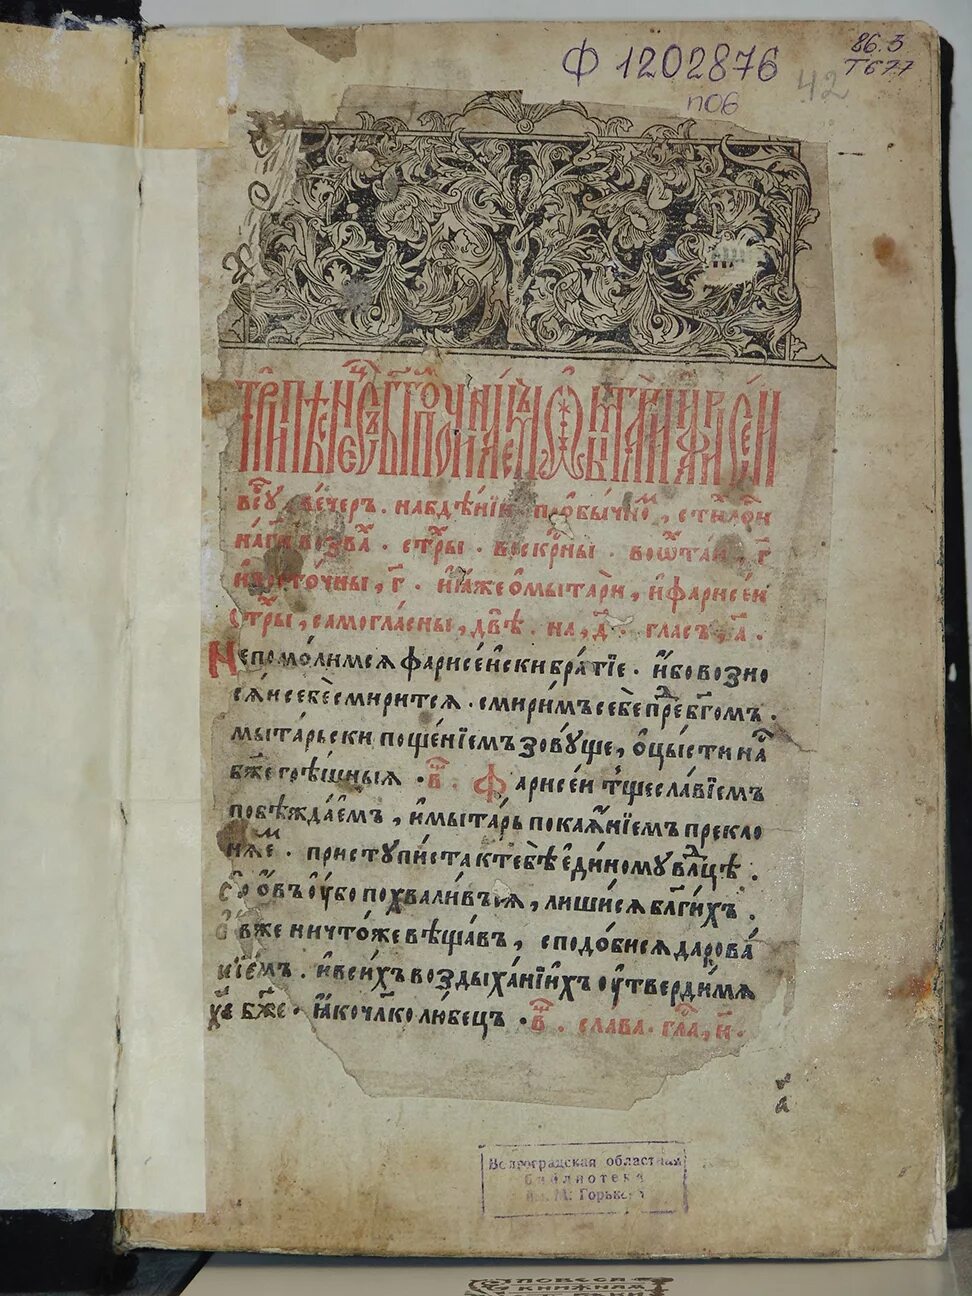 Ф 1202876
86.3
Т677
п06
42
в сꙋ вечеръ. на бдѣнїи по ѡбычаю, стихоло
на ги воззва. стхры. воскрны. во ѡктаи, г҃
и въсточны, г҃. и на же ѡ мытари, и фарисеи
стхры, самогласны, двѣ. на, д҃. гласъ, а҃.
Не помолимся фарисейски братїе. ибо возно
сяи себе смирится. смиримъ себе пред бг҃омъ.
мытарьски пощенїемъ зовꙋще, оцысти на
бж҃е грѣшныя. в҃. Фарисеи тщеславїемъ
побѣждаемъ, и мытарь покаянїемъ прекло
няем. приступиста к тебѣ единому влдцѣ.
ѡвъ ѹбо похваливъся, лишися блг҃ихъ.
ѡвже ничтоже вѣщавъ, сподобися дарова
нїемъ. и в сихъ воздыханїихъ ѹтверди мя
хе бж҃е. яко члк҃олюбецъ. в҃. слава. гла, и҃.
а
Волгоградская областная
библиотека
им. М. Горького